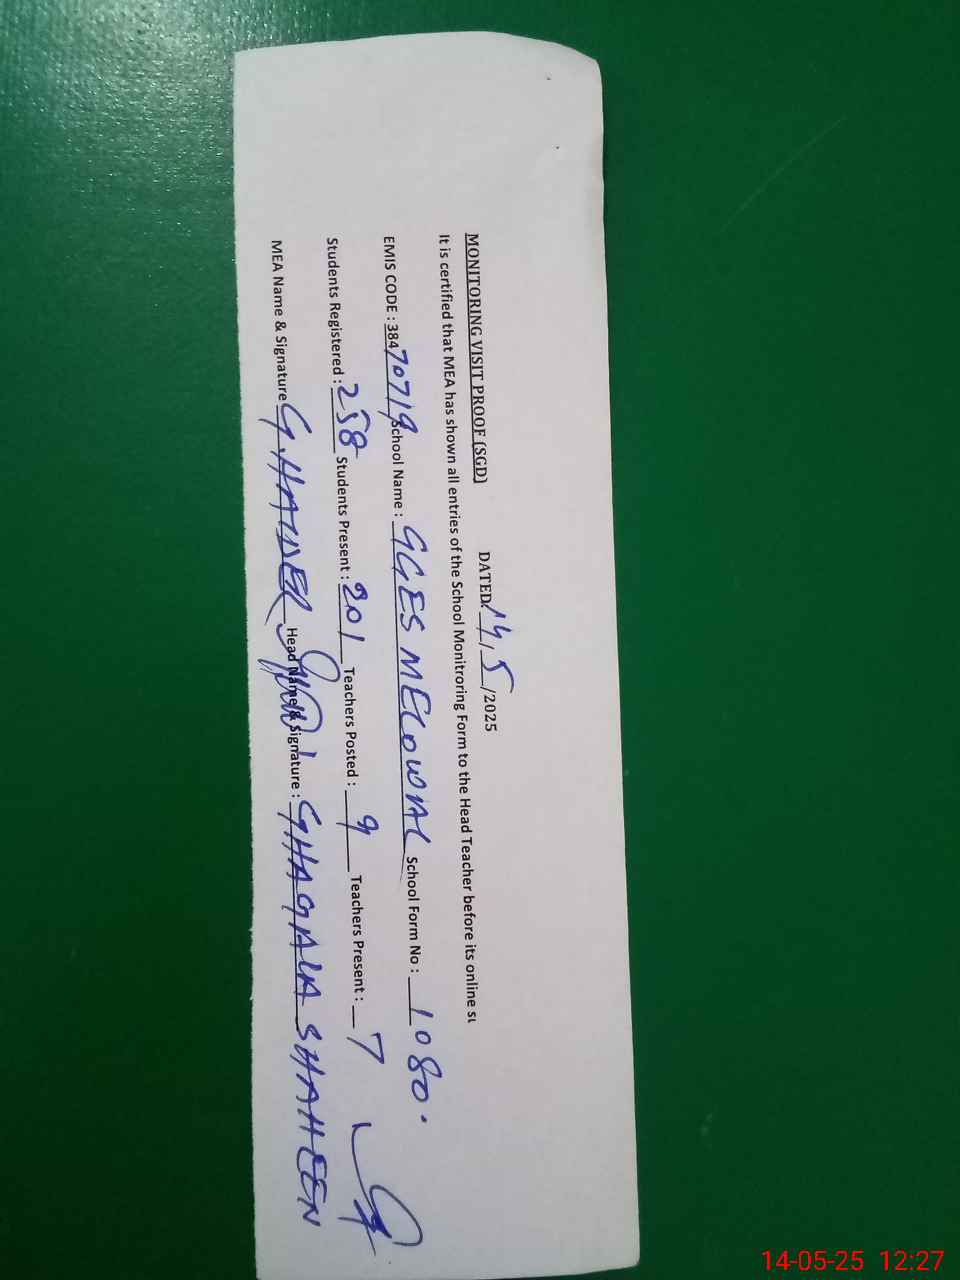 MONITORING VISIT PROOF (SGD) DATED 14/5/2025
It is certified that MEA has shown all entries of the School Monitroring Form to the Head Teacher before its online su
EMIS CODE : 38470719 School Name : GGES MELOWAL School Form No : 1080.
Students Registered : 258 Students Present : 201 Teachers Posted : 9 Teachers Present : 7
MEA Name & Signature G. HAIDER Head Name & Signature : SHAHEEN
14-05-25 12:27